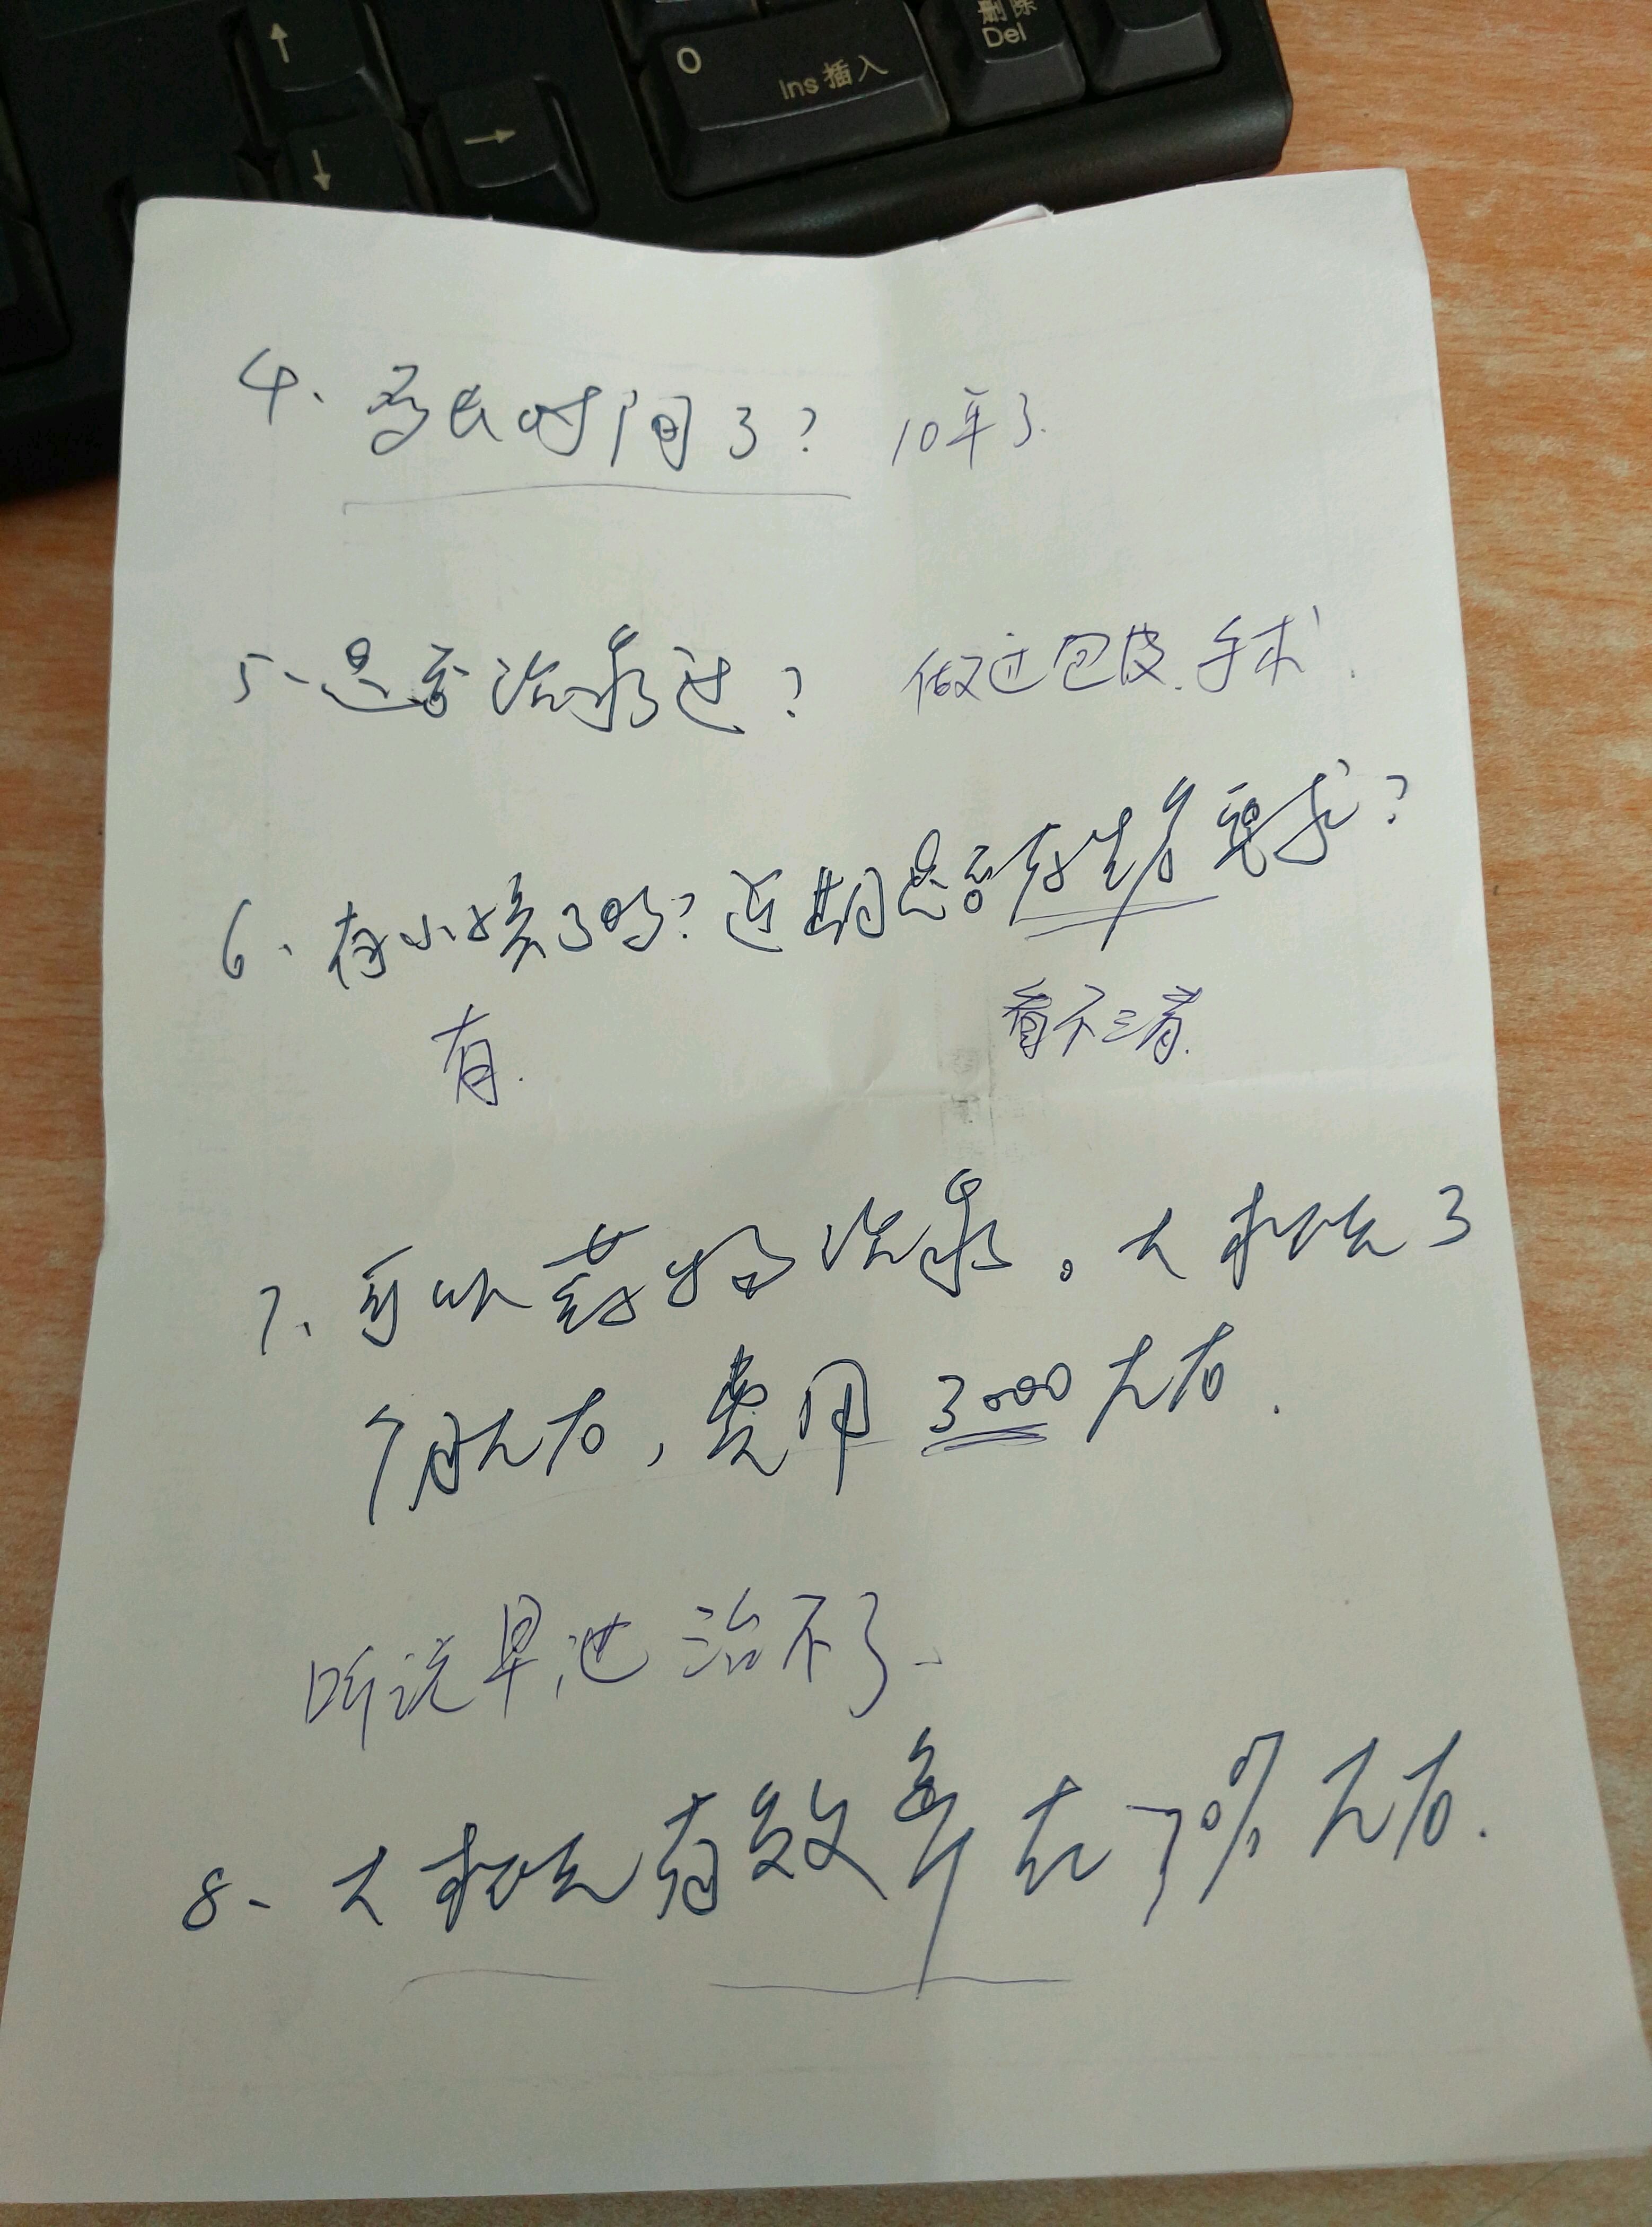 0
Ins 插入
删除
Del
4、多长时间了? 10年了.
5、是否治疗过? 做过包皮手术.
6、有小孩了吗?近期是否有生育要求?
有. 看不清.
7、可以药物治疗。大概3
个月左右,费用3000左右.
听说早泄治不了.
8、大概有效率在70%左右.